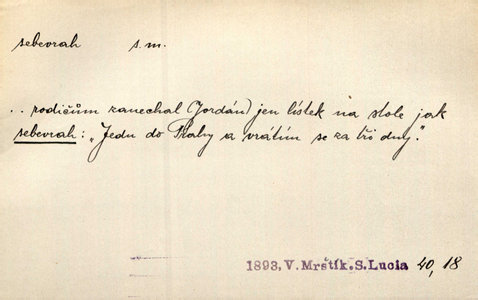 sebevrah s.m.
.. rodičům zanechal (Jordán) jen lístek na stole jak
sebevrah: „Jedu do Prahy a vrátím se za tři dny."
1893, V. Mrštík. S. Lucia 40, 18